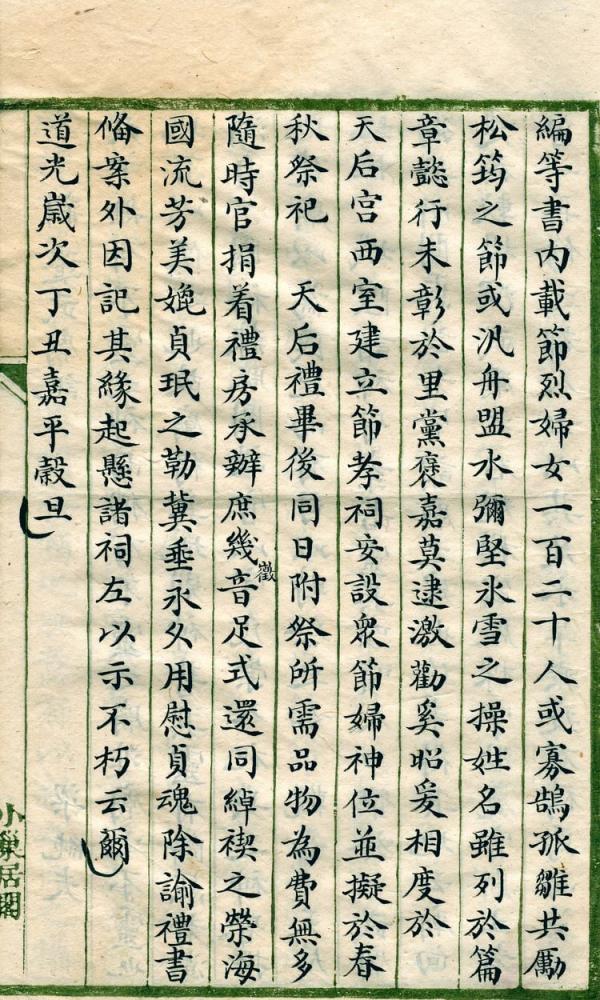 編等書內載節烈婦女一百二十人或寡鵠孤雛共勵
松筠之節或汎舟盟水彌堅氷雪之操姓名雖列於篇
章懿行未彰於里黨褒嘉莫逮激勸奚昭爰相度於
天后宮西室建立節孝祠安設衆節婦神位並擬於春
秋祭祀　天后禮畢後同日附祭所需品物為費無多
隨時官捐着禮房承辦庶幾徽音足式還同綽禊之榮海
國流芳美媲貞珉之勒冀垂永久用慰貞魂除諭禮書
俻案外因記其緣起懸諸祠左以示不朽云爾
道光歲次丁丑嘉平穀旦
小巢居閣